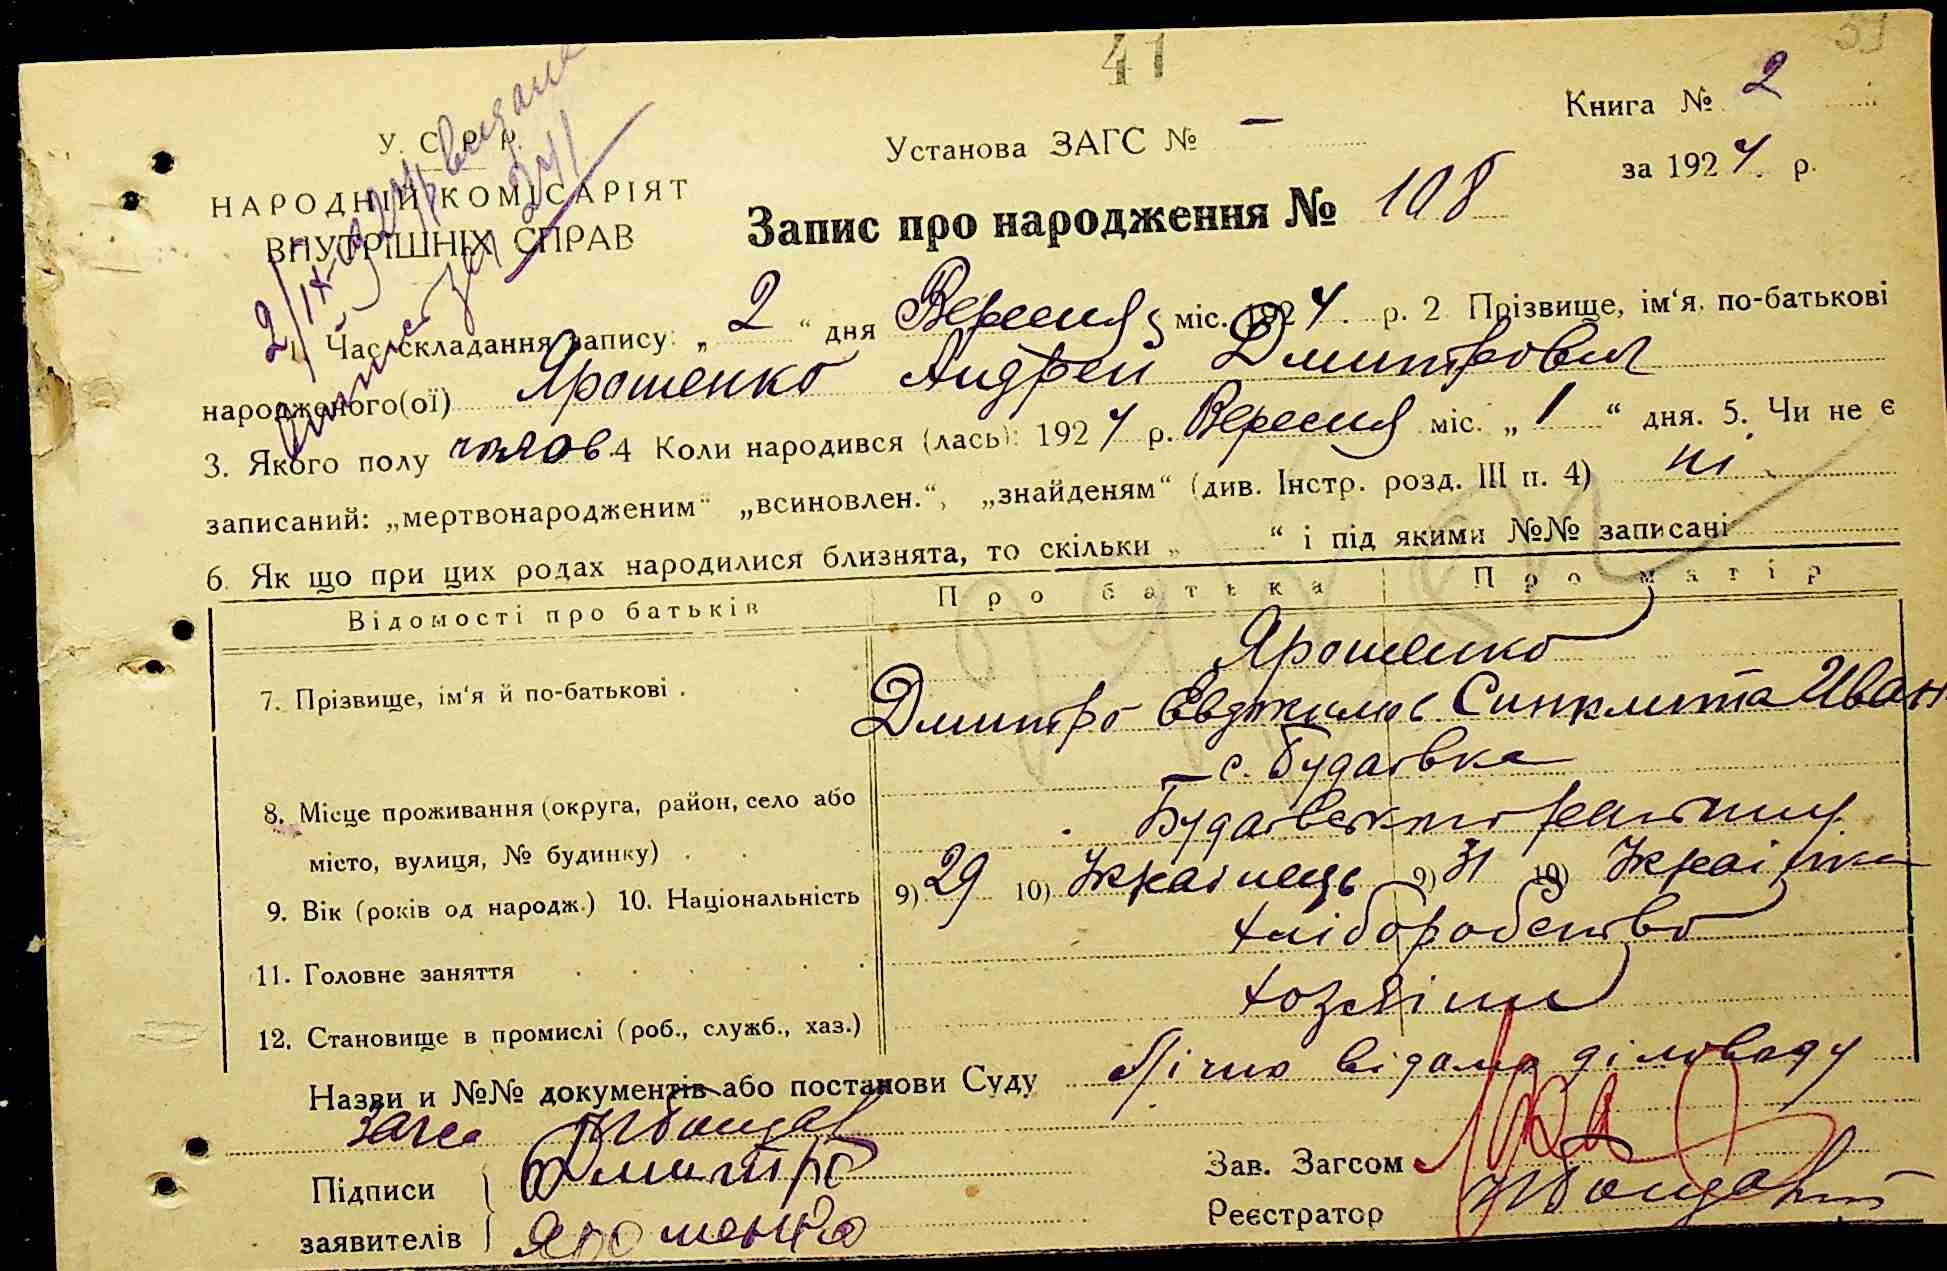 41
39
У. С. Р. Р.
НАРОДНІЙ КОМІСАРІЯТ
ВНУТРІШНІХ СПРАВ
Установа ЗАГС № –
Книга № 2
за 1924 р.
Запис про народження № 108
1. Час складання запису: „2“ дня Вересня міс. 1924 р. 2. Прізвище, ім‘я, по-батькові
народженого(ої) Ярошенко Андрей Дмитрович
3. Якого полу чолов. 4 Коли народився (лась): 1924 р. Вересня міс. „1“ дня. 5. Чи не є
записаний: „мертвонародженим“ „всиновлен.“, „знайденям“ (див. Інстр. розд. III п. 4) ні
6. Як що при цих родах народилися близнята, то скільки „ “ і під якими №№ записані
Відомості про батьків Про батька Про матір
7. Прізвище, ім‘я й по-батькові . Ярошенко
Дмитро Синклита Иван
8. Місце проживання (округа, район, село або с. Будаївка
місто, вулиця, № будинку) . Будаївського району
9. Вік (років од народж.) 10. Національність 9) 29 10) Українець 9) 31 10) Українка
11. Головне заняття хліборобство
12. Становище в промислі (роб., служб., хаз.) хозяїни
Назви и №№ документів або постанови Суду Лічно відомо діловоду
Загса
Підписи Дмитро
заявителів Ярошенко
Зав. Загсом
Реєстратор